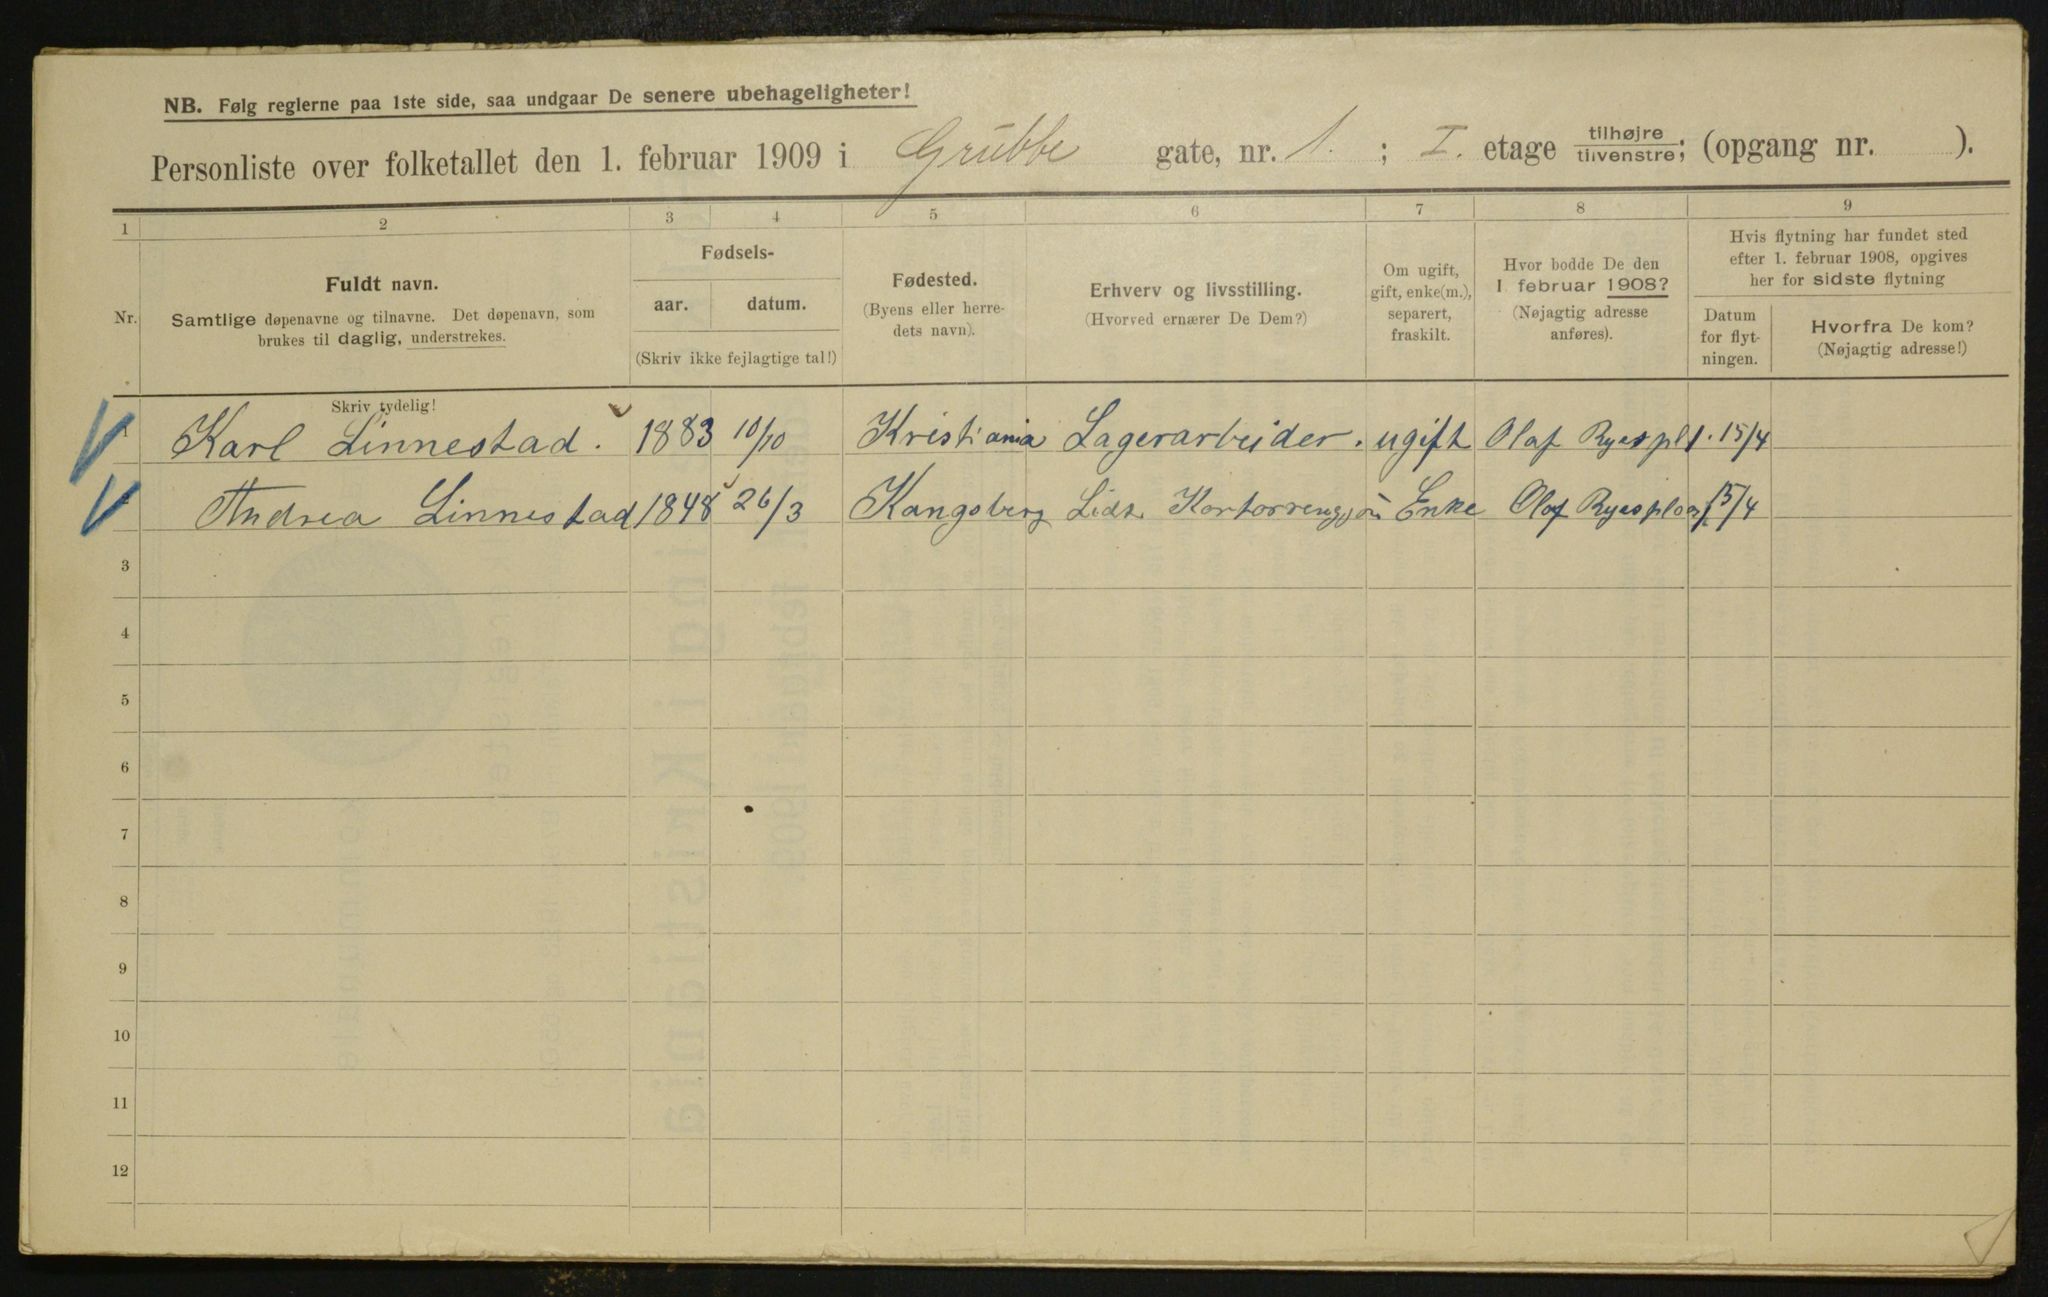 NB. Følg reglerne paa 1ste side, saa undgaar De senere ubehageligheter!
Personliste over folketallet den 1. februar 1909 i Grubbe gate, nr. 1. ; I. etage tilhøjre/tilvenstre; (opgang nr. ).
1 2 3 4 5 6 7 8 9
Nr.
Fuldt navn.
Samtlige døpenavne og tilnavne. Det døpenavn, som
brukes til daglig, understrekes.
Fødsels-
aar. datum.
(Skriv ikke fejlagtige tal!)
Fødested.
(Byens eller herre-
dets navn).
Erhverv og livsstilling.
(Hvorved ernærer De Dem?)
Om ugift,
gift, enke(m.),
separert,
fraskilt.
Hvor bodde De den
1 februar 1908?
(Nøjagtig adresse
anføres).
Hvis flytning har fundet sted
efter 1. februar 1908, opgives
her for sidste flytning
Datum
for flyt-
ningen.
Hvorfra De kom?
(Nøjagtig adresse!)
Skriv tydelig!
1 Karl Linnestad. 1883 10/10 Kristiania Lagerarbeider. ugift Olaf Ryespl 1. 15/4
Andrea Linnestad 1848 26/3 Kongsberg Enke Olaf Ryesplas 15/4
3
4
5
6
7
8
9
10
11
12